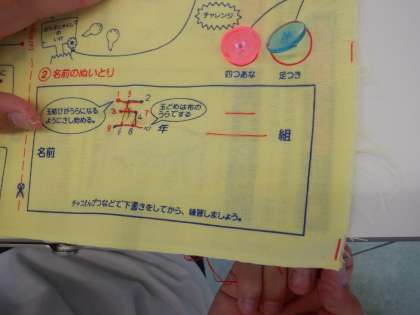 チャレンジ
四つあな
足つき
② 名前のぬいとり
玉結びがうらになる
ようにさし始める。
玉どめは布の
うらでする
年
組
名前
チャコえんぴつなどで下書きをしてから、練習しましょう。